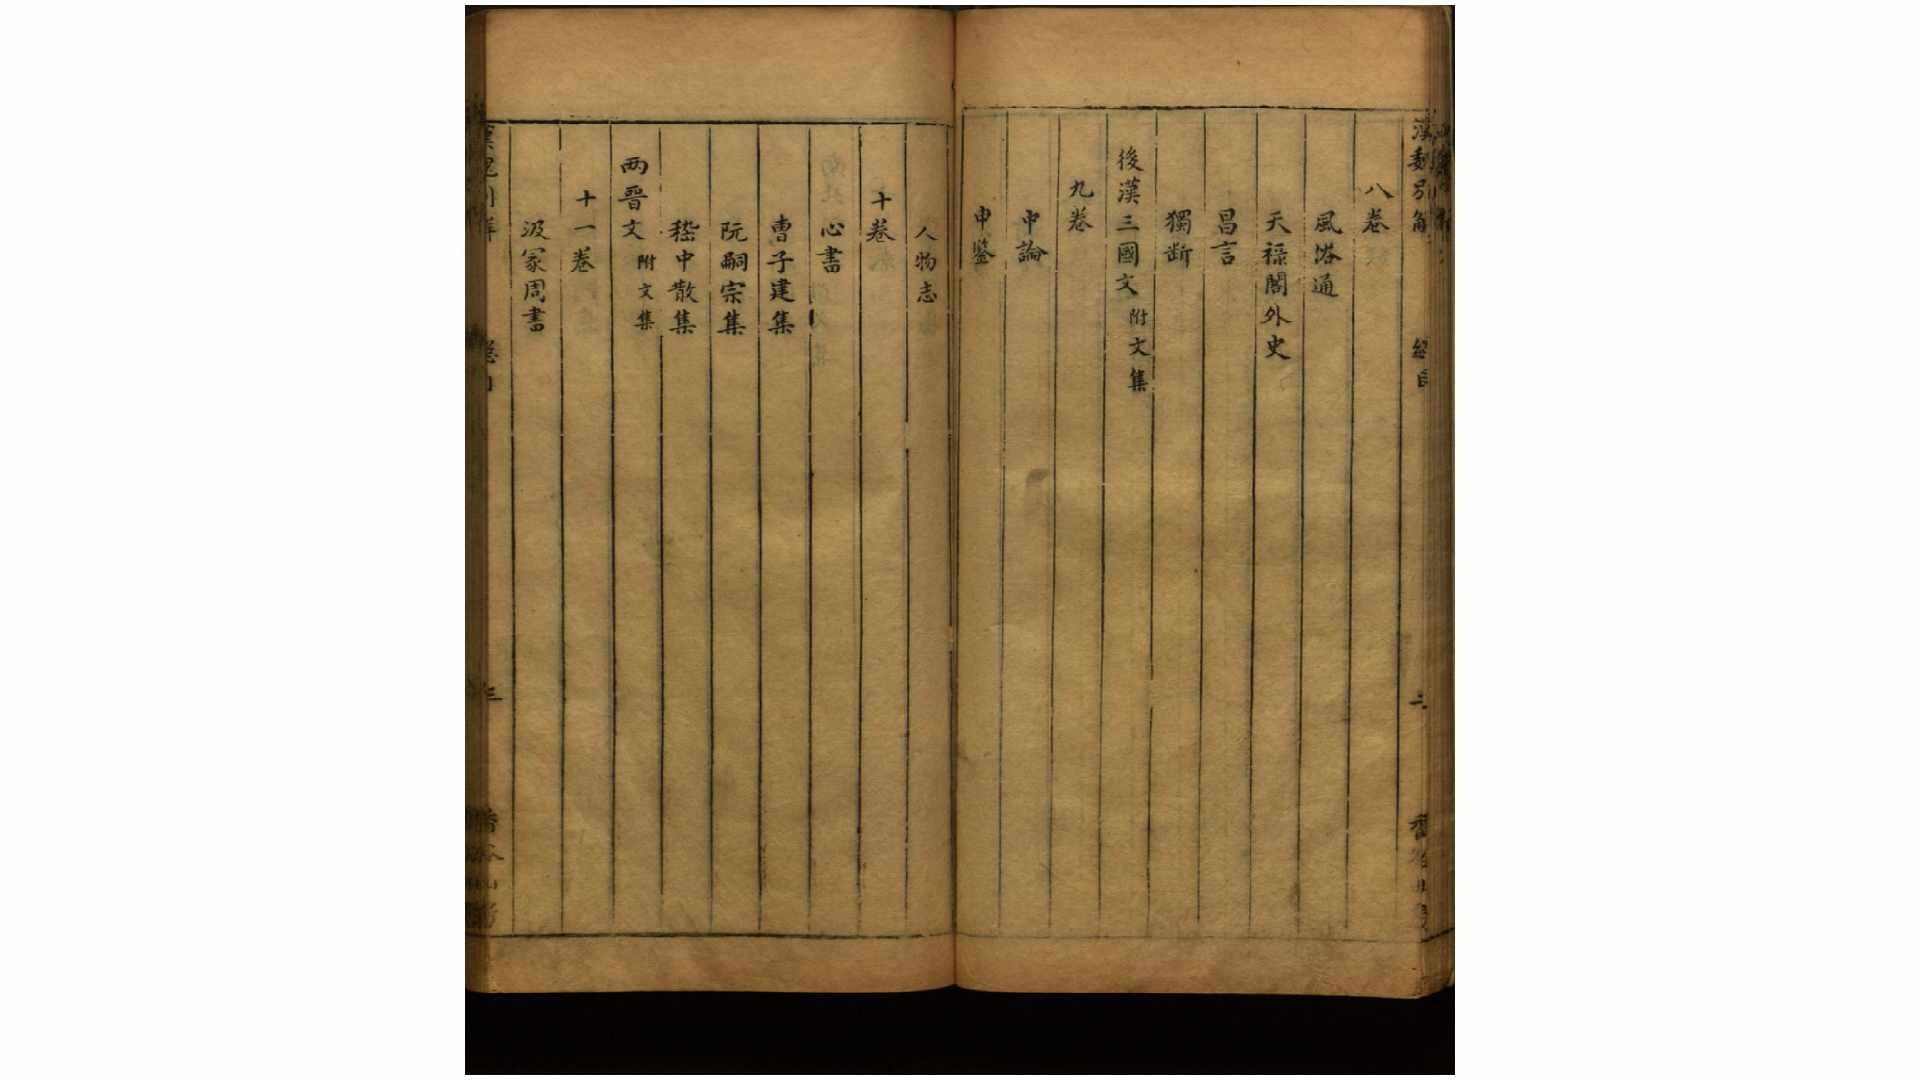 八卷
風俗通
天祿閣外史
昌言
獨斷
後漢三國文附文集
九卷
中論
申鑒
人物志
十卷
心書
曹子建集
阮嗣宗集
嵇中散集
两晉文附文集
十一卷
汲冢周書